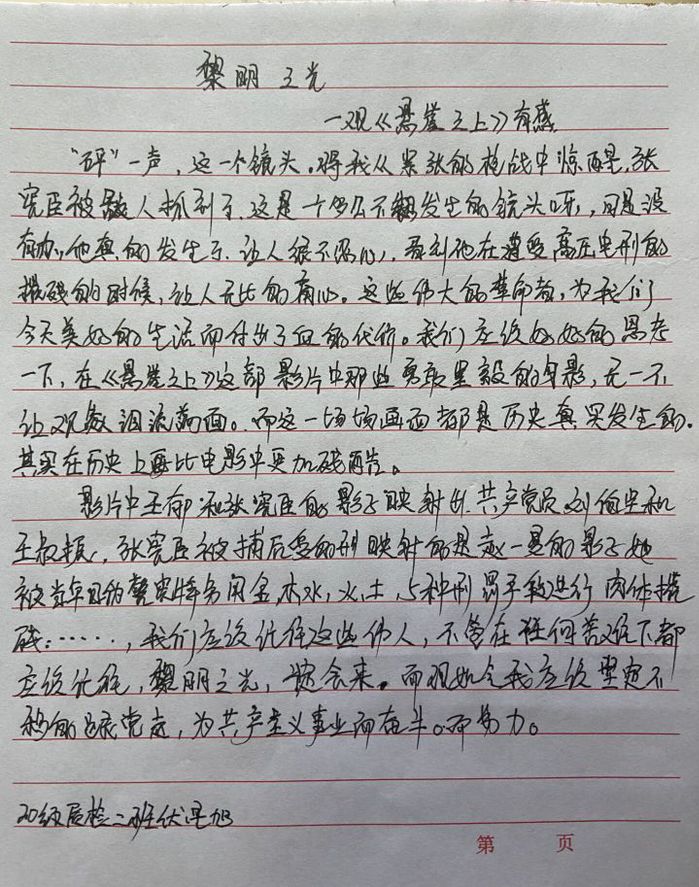 黎明之光
—观《悬崖之上》有感
"砰"一声，这一个镜头。将我从紧张的枪战中惊醒，张
宪臣被敌人抓到了，这是一个多么不想发生的镜头呀，可是没
有办，他真的发生了，让人很不忍心，看到他在遭受高压电刑的
摧残的时候，让人无比的痛心。这些伟大的革命者，为我们
今天美好的生活而付出了血的代价。我们应该好好的思考
一下，在《悬崖之上》这部影片中那些勇敢坚毅的身影，无一不
让观众泪流满面。而这一场场画面都是历史真实发生的。
其实在历史上要比电影中更加残酷。
影片中王郁和张宪臣的影子映射出共产党员刘伯坚和
王叔振，张宪臣被捕后受的刑映射的是赵一曼的影子她
被当年日伪警察特务用金，木水，火，土，5种刑罚手段进行肉体摧
残……，我们应该记住这些伟人，不管在任何苦难下都
应该记住，黎明之光，一定会来。而现如今我应该坚定不
移的跟党走，为共产主义事业而奋斗。而努力。
20级质检二班伏星旭
第 页